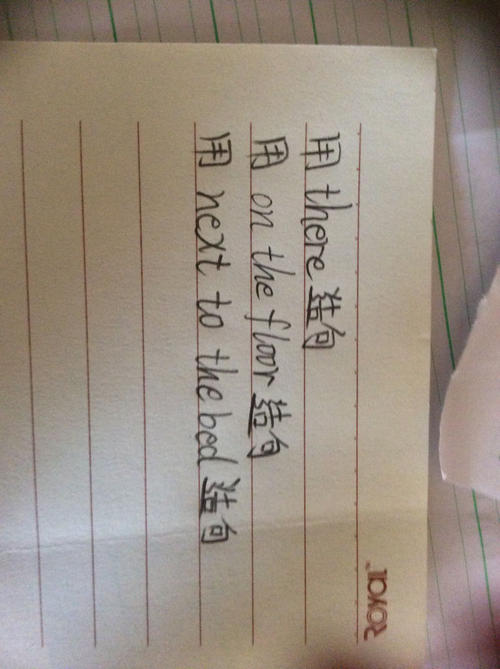 用 there 造句
用 on the floor 造句
用 next to the bed 造句